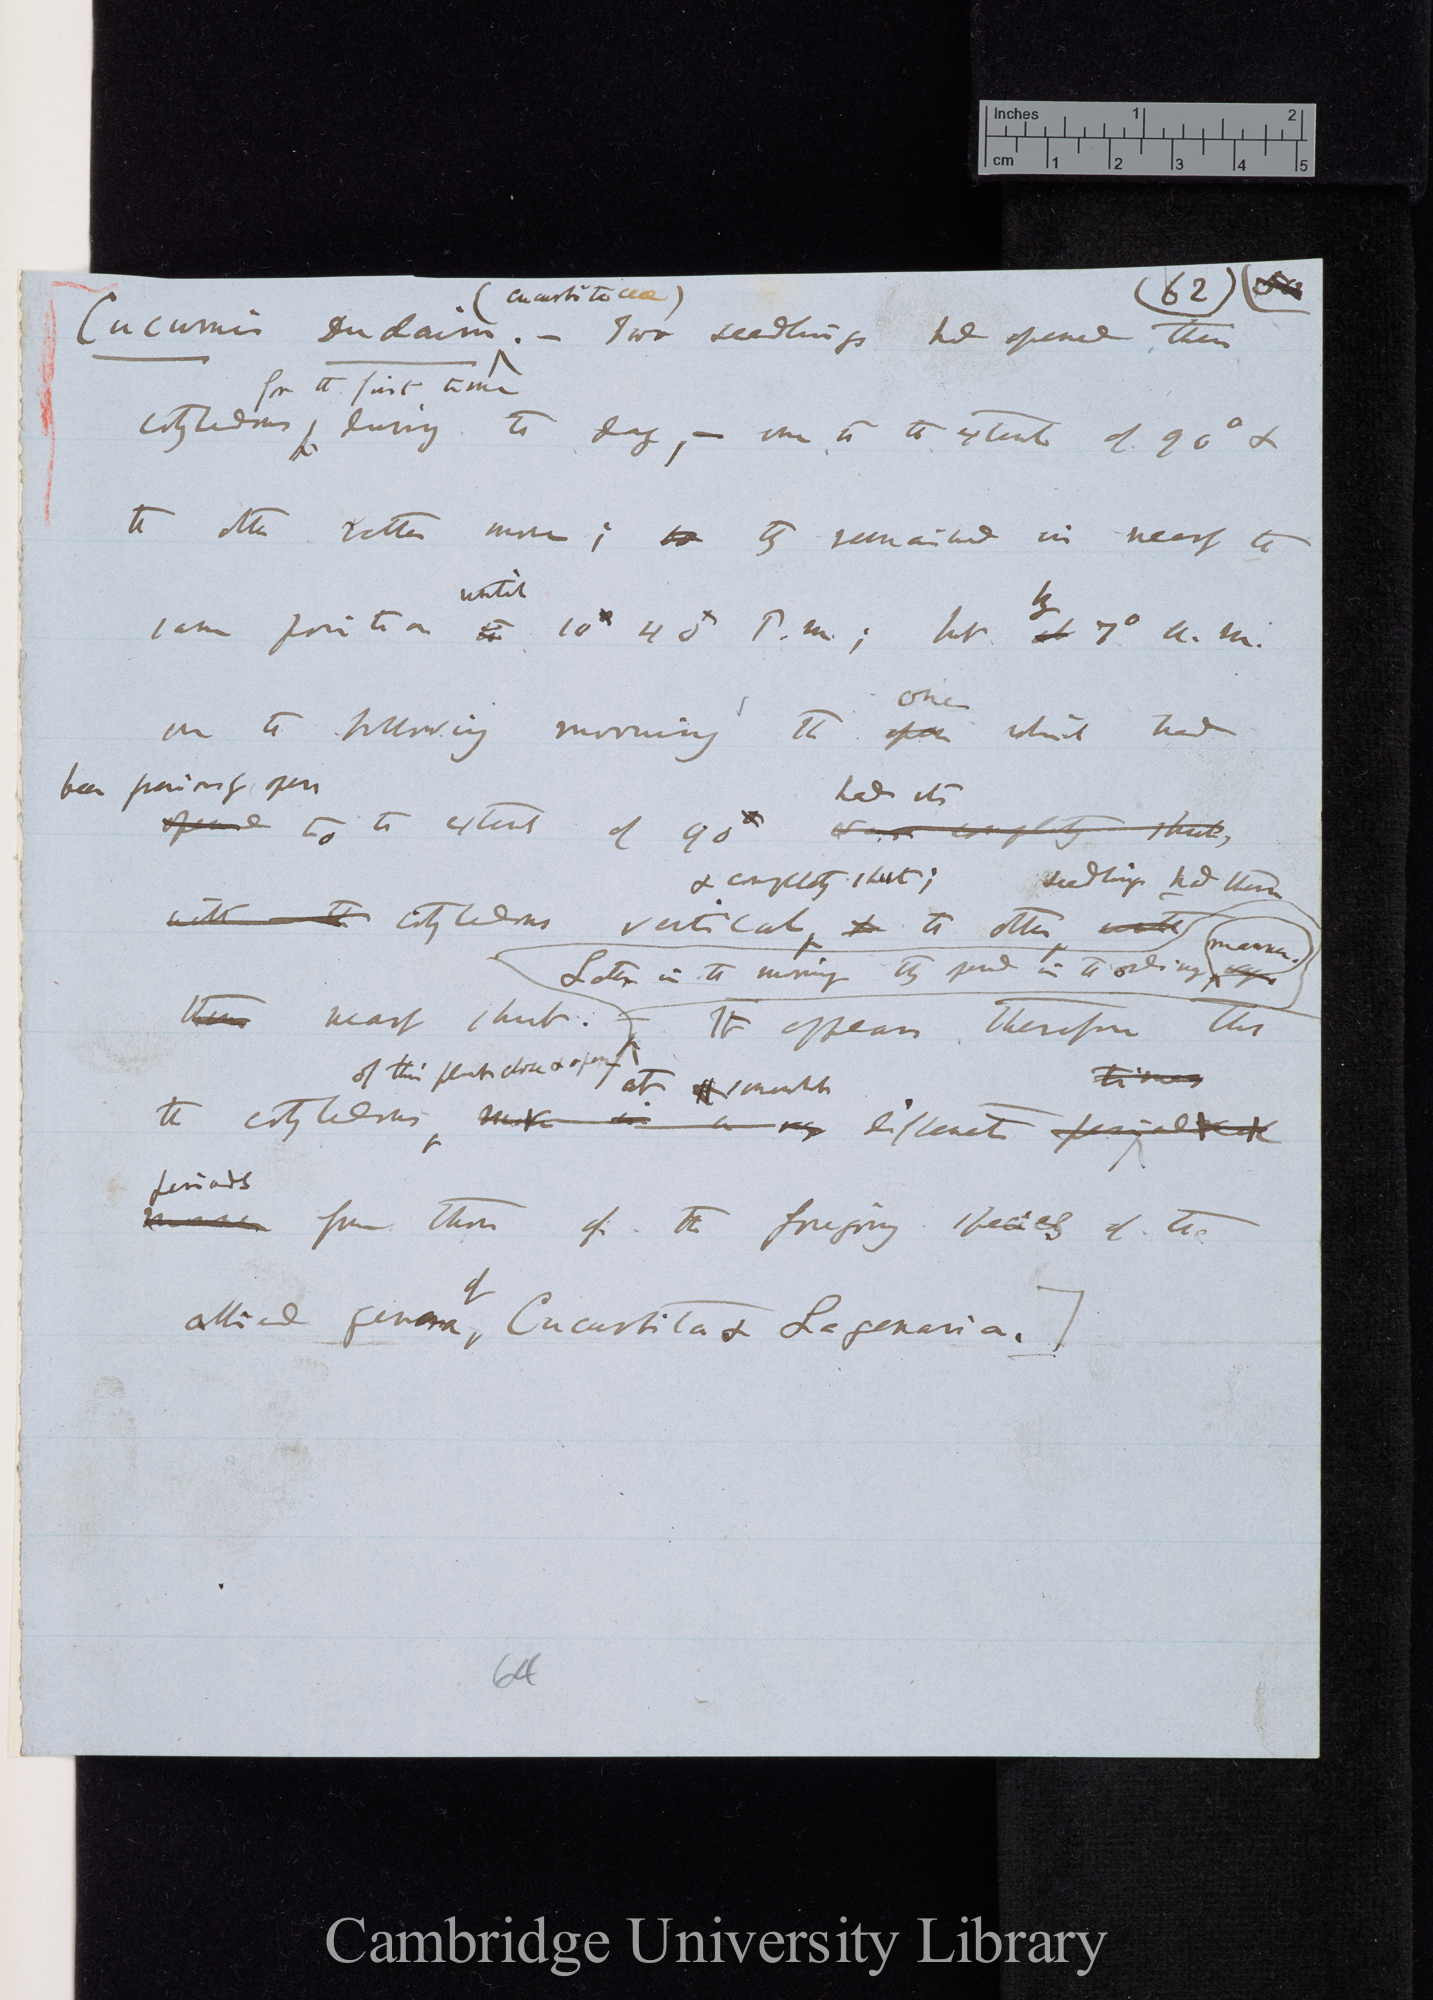 Inches 1 2
cm 1 2 3 4 5
(62)
(Cucurbitaceae)
Cucumis dudaim. — Two seedlings had opened their
for the first time
cotyledons, during the day, — one to the extent of 90° &
the other rather more; to they remained in nearly the
until by
same position to 10° 40' P.m.; but at 7° a. m.
one
on the following morning the open which had
been previously open had its
opened to the extent of 90° was completely shut,
& completely shut; seedling had them
with the cotyledons vertical, & the other with
manner.
Later in the morning they opened in the ordinary
them nearly shut. — It appears therefore that
of this plant close & open at somewhat times
the cotyledons, move in a very different
periods
manner from those of the foregoing species of the
of
allied genera, Cucurbita & Lagenaria.]
64
Cambridge University Library